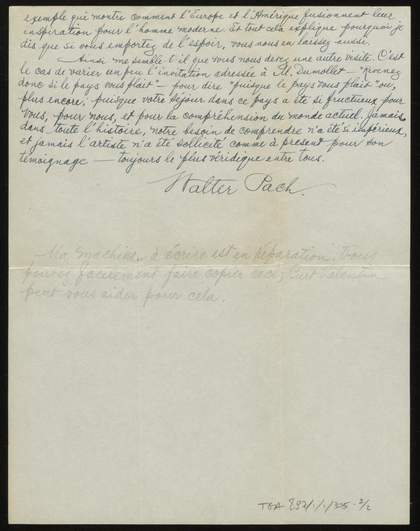 exemple qui montre comment l'Europe et l'Amérique fusionnent leur
inspiration pour l'homme moderne. Et tout cela explique pourquoi je
dis que si vous emportez de l'espoir, vous nous en laissez aussi.
Ainsi me semble-t-il que vous nous devez une autre visite. C'est
le cas de varier un peu l'invitation adressée à M. Dumollet — "revenez
donc si le pays vous plait" — pour dire "puisque le pays vous plait" ou,
plus encore: puisque votre séjour dans ce pays a été si fructueux pour
vous, pour nous, et pour la compréhension du monde actuel. Jamais,
dans toute l'histoire, notre besoin de comprendre n'a été si impérieux,
et jamais l'artiste n'a été sollicité comme à présent pour son
témoignage — toujours le plus véridique entre tous.
Walter Pach.
Ma machine à écrire est en réparation. Vous
pouvez facilement faire copier ceci; Curt Valentin
peut vous aider pour cela.
TGA 992/1/1/325 - 2/2